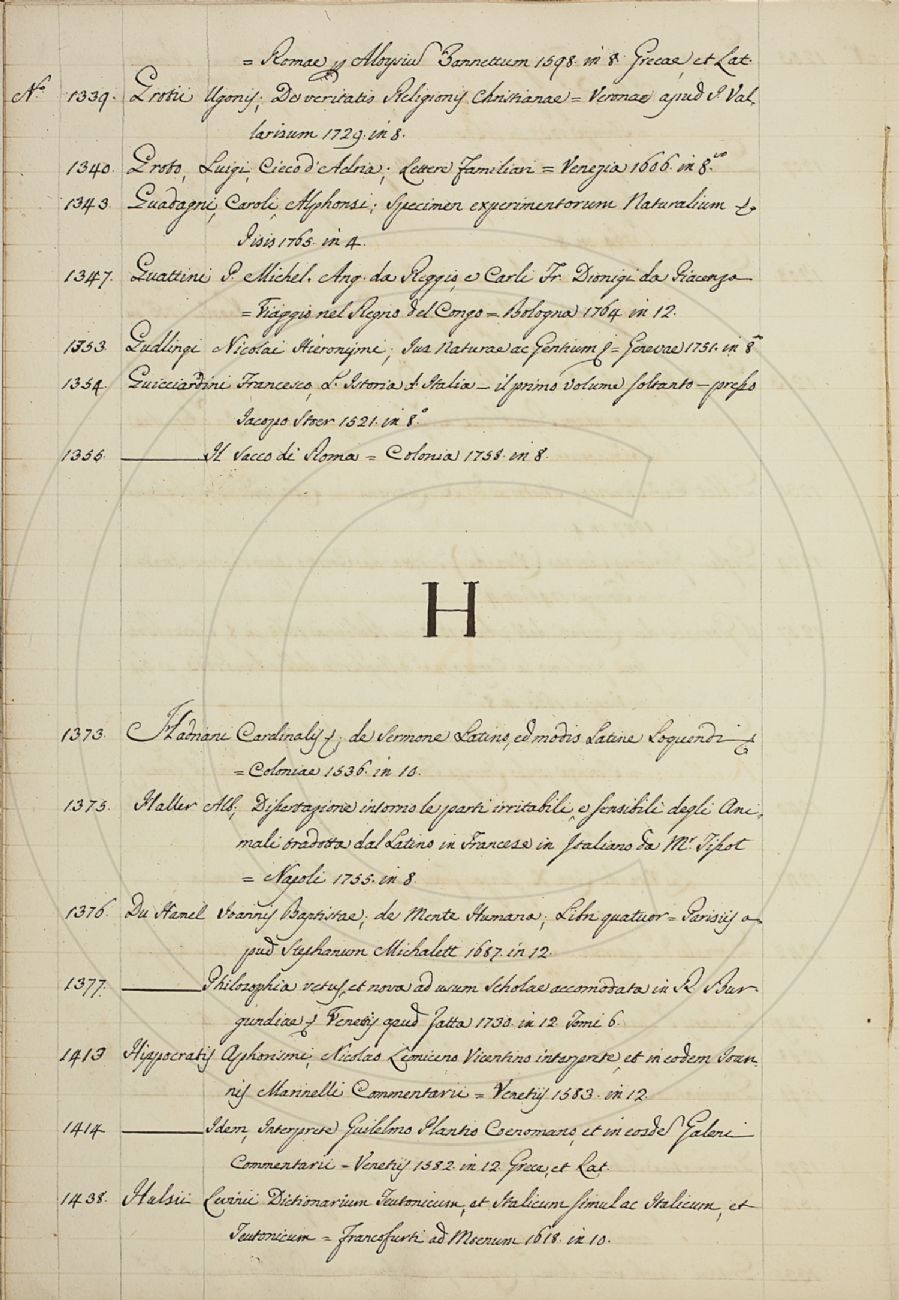 = Romae p Aloysiu Zannettum 1598. in 8. Grecae, et Lat.
N.º 1339. Grotii Ugonis; De veritatis Religionis Christianae = Veronae apud P. Val,
larisum 1729. in 8.
1340. Groto, Luigi, Cieco d'Adria; Lettere Familiari = Venezia 1606. in 8.vo
1343. Guadagni, Caroli, Alphonsi; Specimen experimentorum Naturalium
Pisis 1765. in 4.
1347. Guattini P. Michel. Ang. da Reggio, e Carli Fr. Dionigi da Piacenza
= Viaggio nel Regno del Congo = Bologna 1764 in 12.
1353. Gudlingi Nicolai Hieronymi; Jus Naturae ac Gentium = Genevae 1751. in 8
1354. Guicciardini Francesco, L' Istoria d' Italia - il primo volume soltanto - presso
Jacopo Stoer 1521. in 8.º
1355. Il Sacco di Roma = Colonia 1758. in 8.
H
1373. Hadriani Cardinalis; de Sermone Latino, ed modis Latine Loquendi
= Coloniae 1536. in 10.
1375. Haller Alb; Dissertazione intorno le parti irritabili, e sensibili degli Ani,
mali tradotta dal Latino in Francese in Italiano da Mr. Tissot
= Napoli 1755. in 8.
1376. Du Hamel Joannis Baptistae; de Mente Humana; Libri quatuor = Parisiis a-
pud Stephanum Michalett 1687. in 12.
1377. Philosophia vetus, et nova ad usum Scholae accomodata in R. Bur-
gundiae Venetijs apud Jatta 1730. in 12 Tomi 6.
1413 Hippocratis Aphorismi, Nicolao Leoniceno Vicentino interprete, et in eodem Joan-
nis Marinelli Commentarii = Venetijs 1583. in 12
1414 Idem, Interprete Guilelmo Plantio Coenomano, et in eosde Galeni
Commentarii - Venetijs 1582. in 12. Grece, et Lat.
1438. Hulsii Levinii Dictionarium Teutonicum, et Italicum simul ac Italicum, et
Teutonicum = Francofurti ad Moenum 1618. in 10.